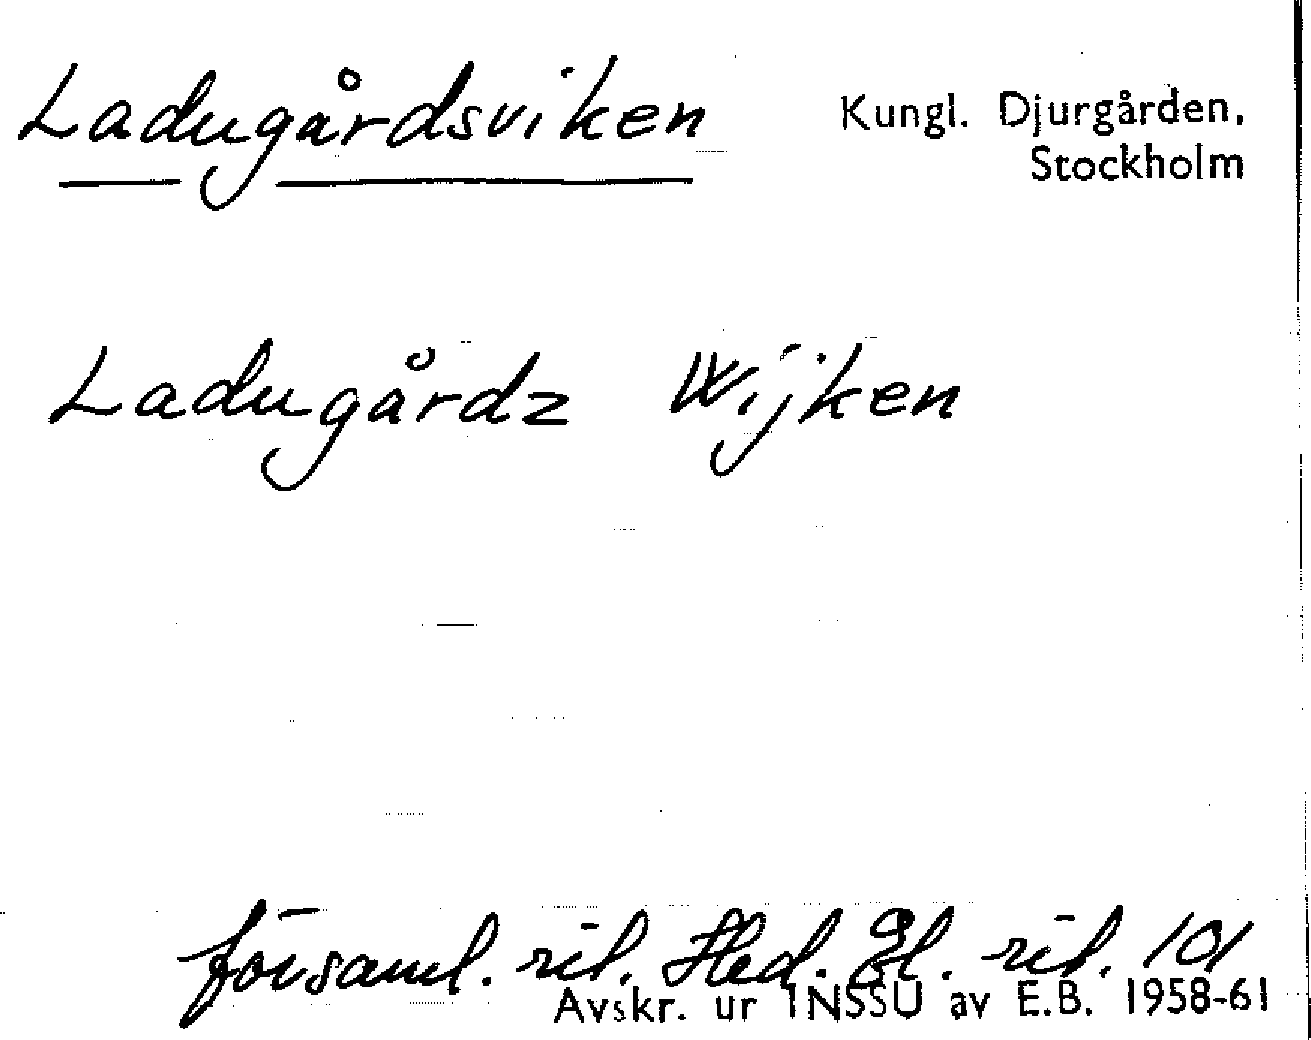 Ladugårdsviken
Kungl. Djurgården,
Stockholm
Ladugårdz Wijken
församl. rit. Hed. Gl. rit. 101
Avskr. ur INSSU av E.B. 1958-61